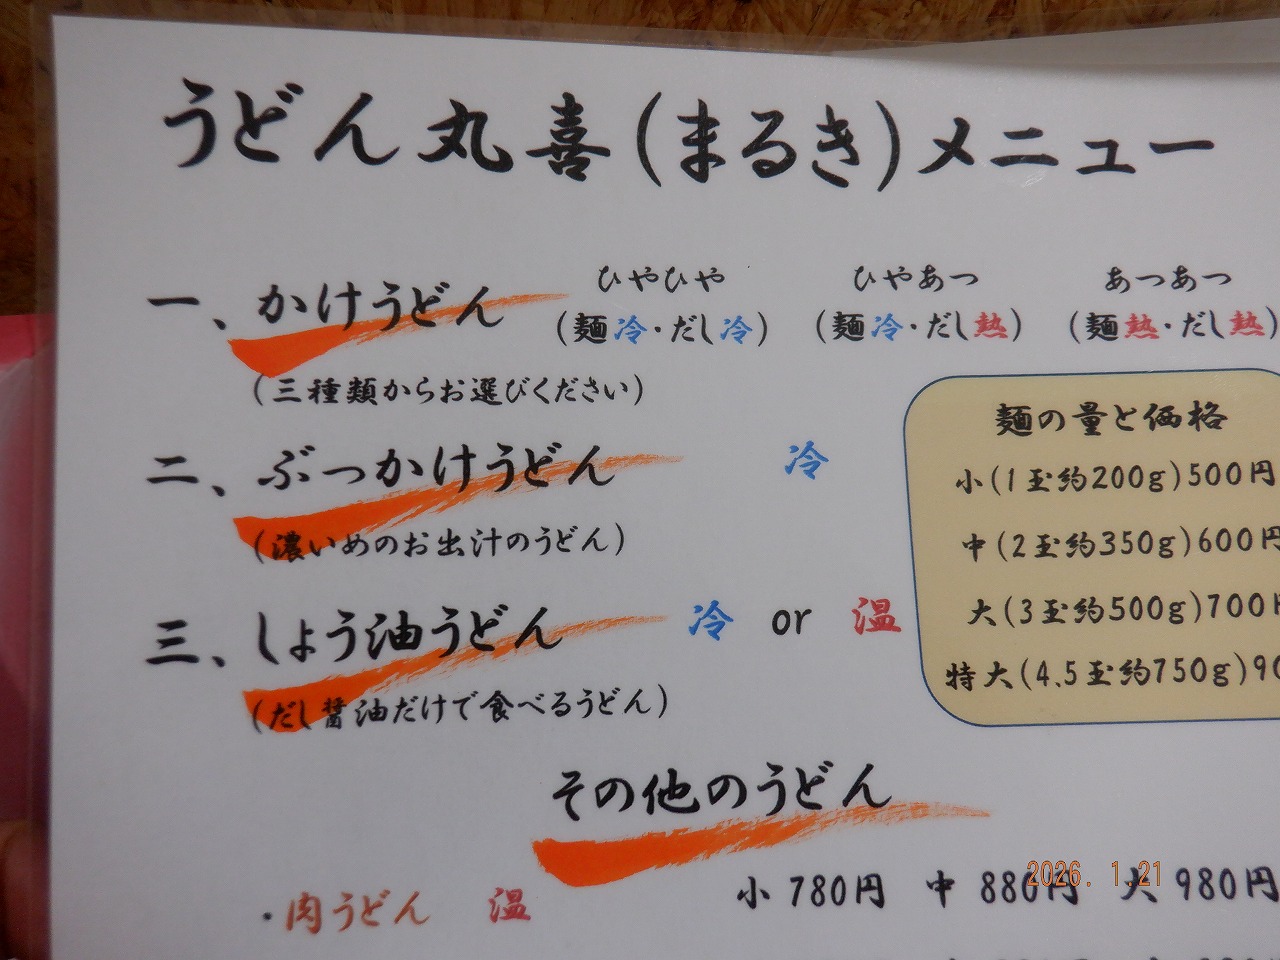 うどん丸喜(まるき)メニュー
一、かけうどん
ひやひや ひやあつ あつあつ
(麺冷・だし冷) (麺冷・だし熱) (麺熱・だし熱)
(三種類からお選びください)
二、ぶっかけうどん 冷
(濃いめのお出汁のうどん)
三、しょう油うどん 冷 or 温
(だし醤油だけで食べるうどん)
麺の量と価格
小(1玉約200g)500円
中(2玉約350g)600円
大(3玉約500g)700円
特大(4.5玉約750g)90
その他のうどん
・肉うどん 温 小 780円 中 880円 大 980円
2026. 1.21